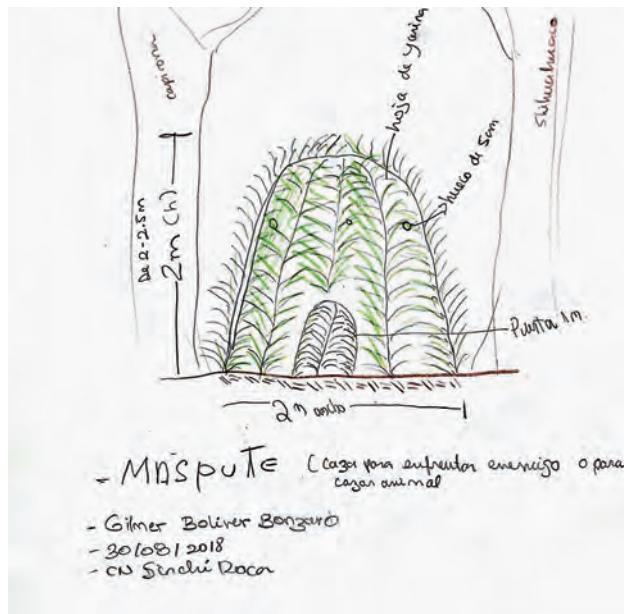 capirona
Shihuahuaco
hoja de yarina
hueco de 5cm
De 2-2.5m
2m (h)
Puerta 1m.
2m ancho
- MÁSPUTE (casa para enfrentar enemigo o para
cazar animal
- Gilmer Boliver Bonzano
- 30/08/2018
- CN Sinchi Roca